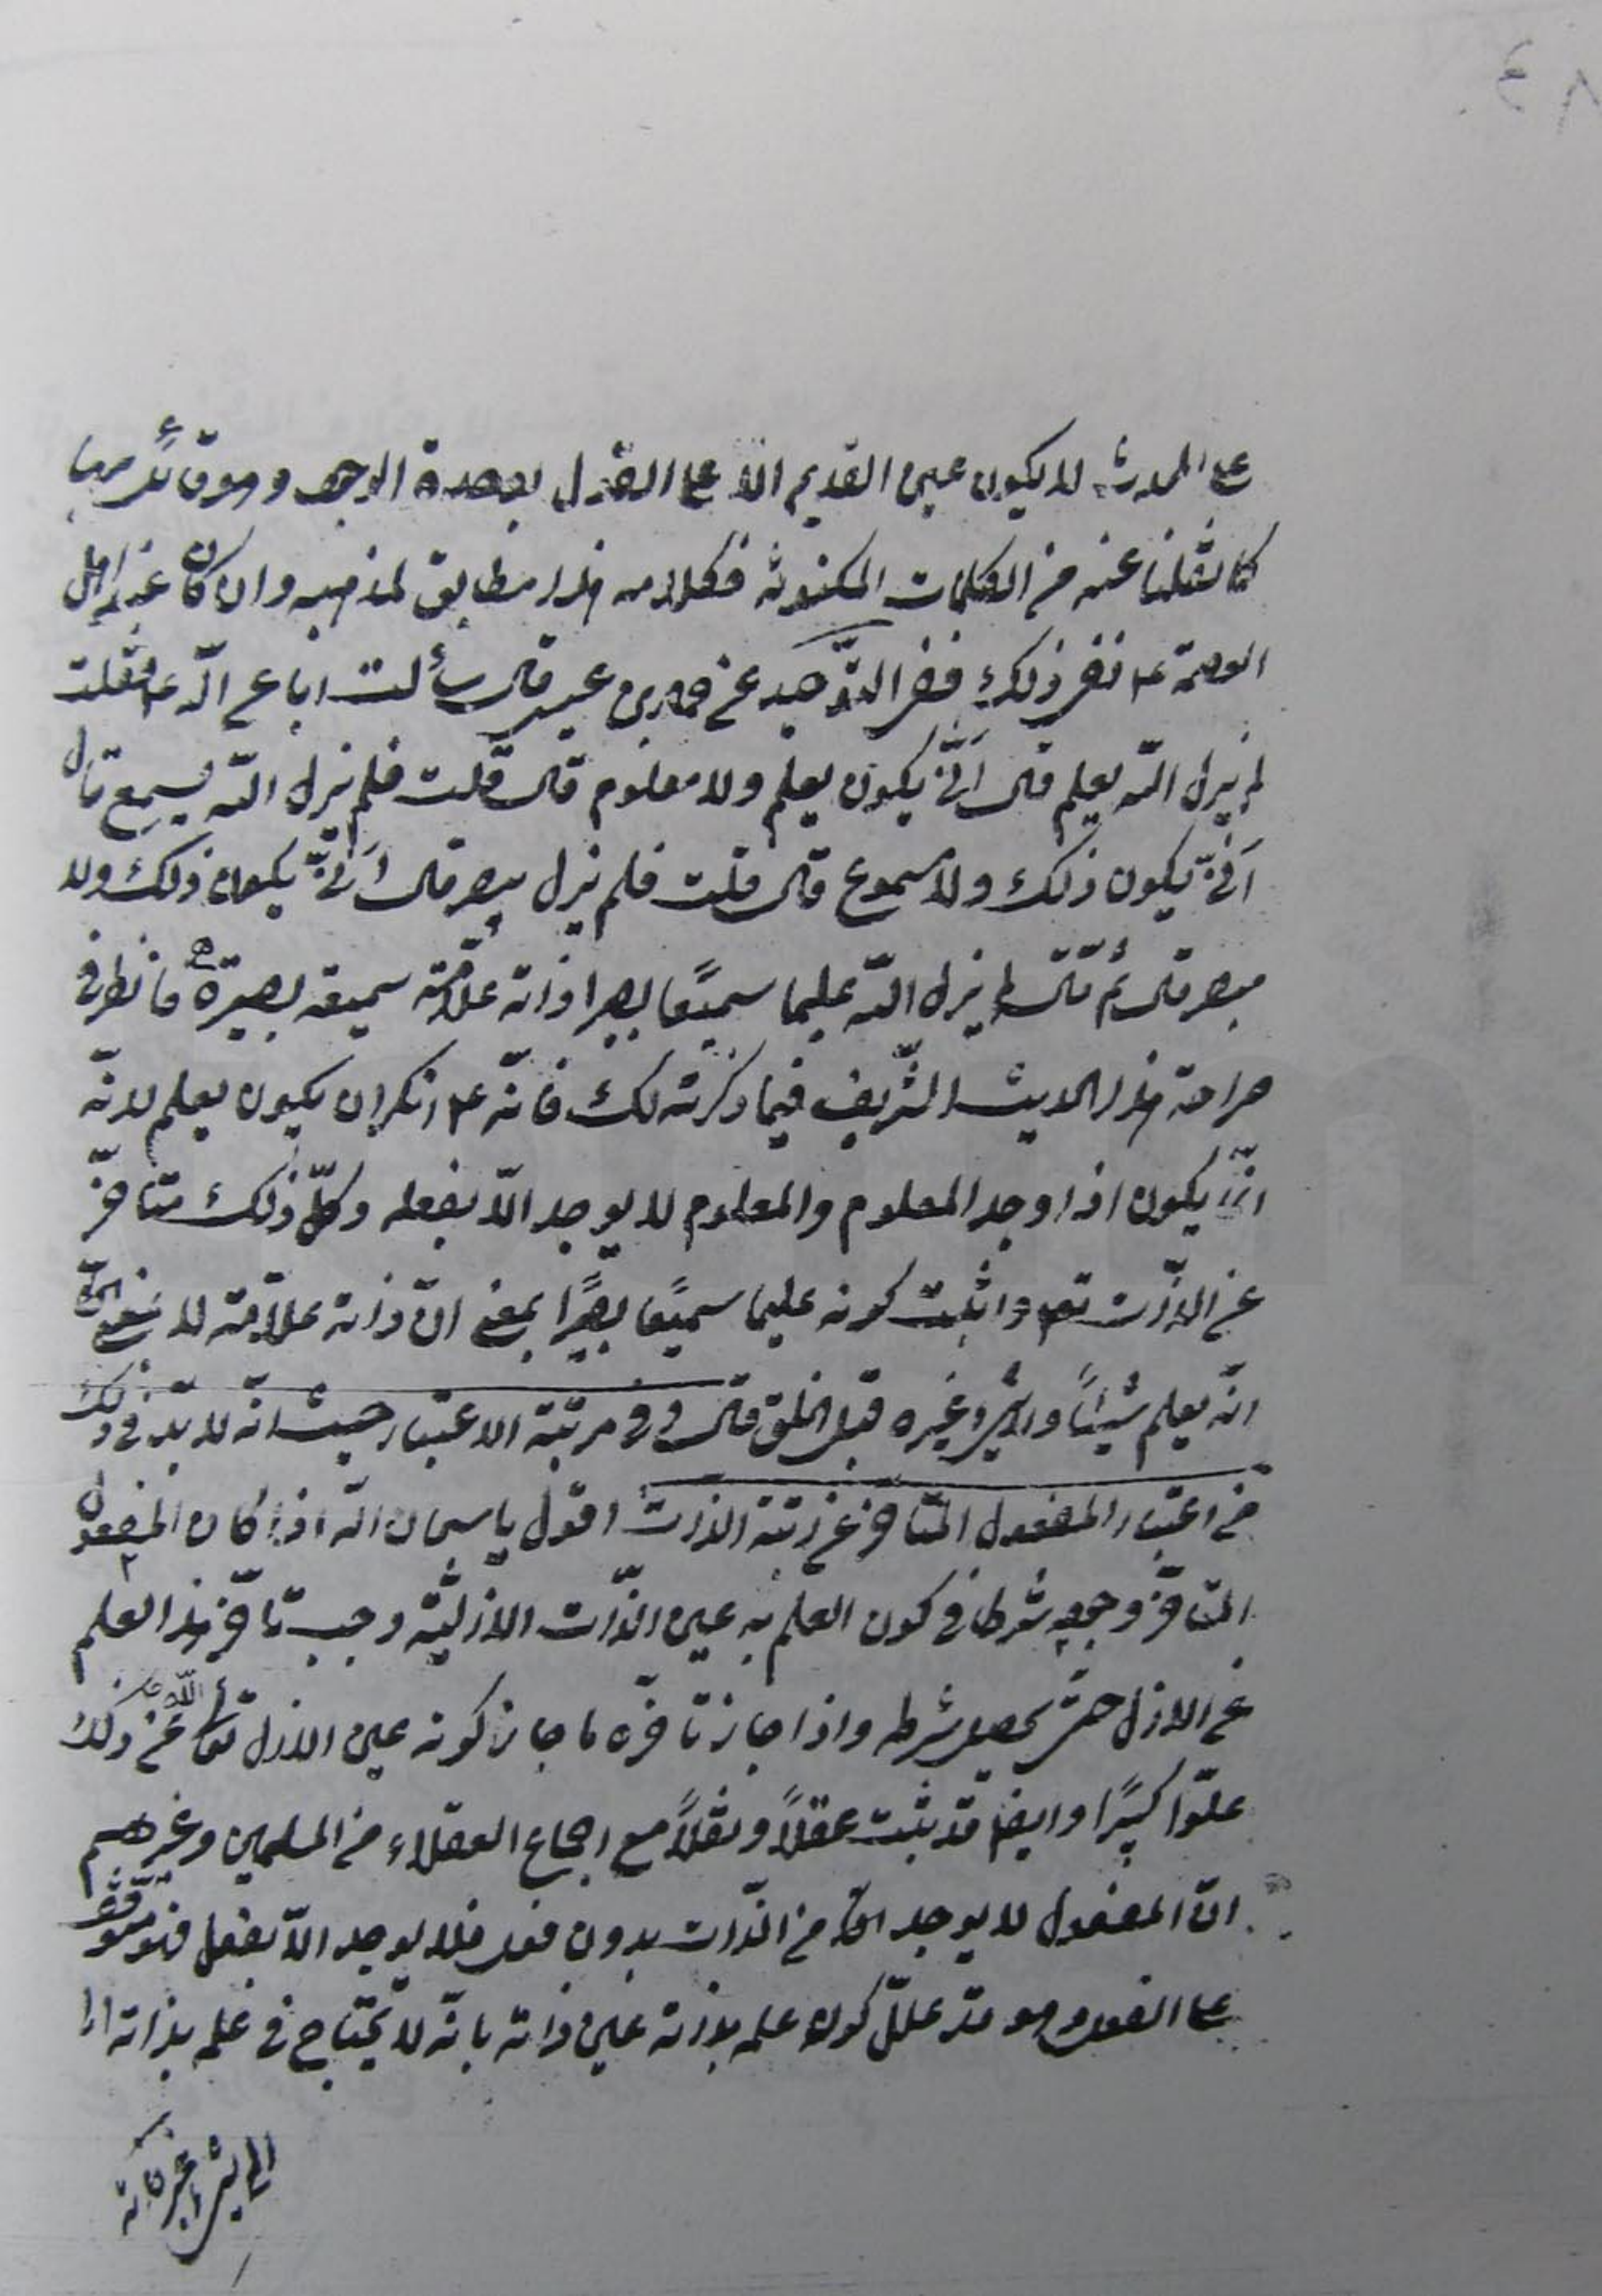 ٨٤
على الحدوث لا يكون عين القديم الا على القول بوحدة الوجود وهو قائل بها
كما نقلنا عنه من الكلمات المكنونة فكلامه هذا مطابق لمذهبه وان كان عند اهل
العصمة ع نفى ذلك ففى التوحيد عن حماد بن عيسى قال سألت ابا عبد الله ع فقلت
لم يزل الله يعلم قال أنّى يكون يعلم ولا معلوم قال قلت فلم يزل الله يسمع قال
أنّى يكون ذلك ولا مسموع قال قلت فلم يزل يبصر قال أنّى يكون ذلك ولا
مبصر قال ثم قال لم يزل الله عليما سميعًا بصيرا ذاته علّامة سميعه بصيرة ه فانظر فى
صراحة هذا الحديث الشّريف فيما ذكرته لك فانّه ع انكر ان يكون يعلم لانّه
انّما يكون اذا وجد المعلوم والمعلوم لا يوجد الّا بفعله وكلّ ذلك متأخّر
عن الذّات تعم واثبت كونه عليما سميعًا بصيرًا بمعنى انّ ذاته علّامة لا بمعنى
انّه يعلم شيئًا غيره قبل الخلق قال وفى مرتبة الاعتبار حيث انّه لا بدّ فى ذلك
من اعتبار المفعول المتأخّر عن رتبة الذات اقول يا سبحان الله اذا كان المفعول
المتأخّر وجوده شرطا فى كون العلم به عين الذّات الازليّة وجب تأخّر هذا العلم
عن الازل حتّى يحصل شرطه واذا جاز تأخّره ما جاز كونه عين الازل تعالى الله عن ذلك
علوّا كبيرًا وايضا قد ثبت عقلًا ونقلًا مع اجماع العقلاء من المسلمين وغيرهم
انّ المفعول لا يوجد من الذّات بدون فعل فلا يوجد الّا بفعل فهو متوقّف
على الفعل وهو قد علل كون علمه بذاته عين ذاته بانّه لا يحتاج فى علمه بذاته
الى شىء غير ذاته